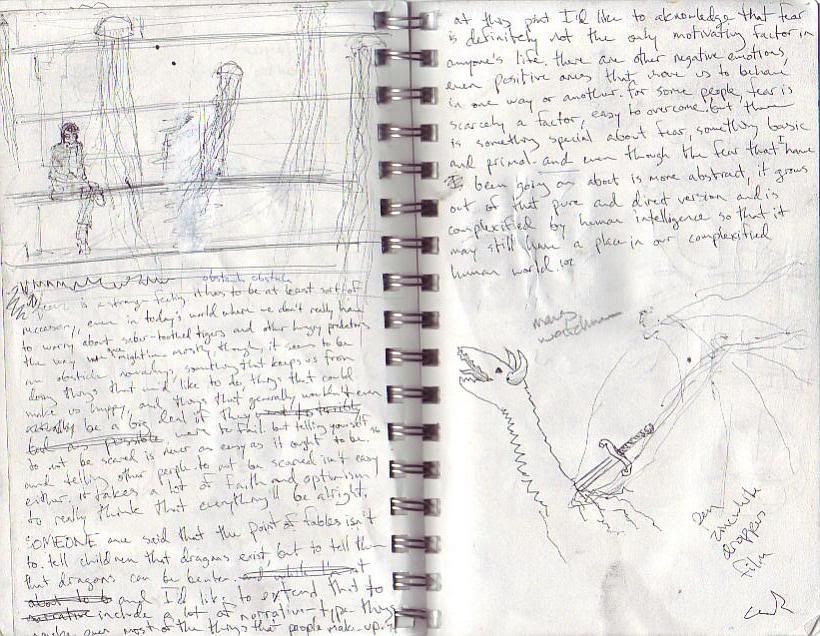 obstacle
fear is a strange feeling. it has to be at least sort of
necessary, even in today's world where we don't really have
to worry about saber-toothed tigers and other hungry predators
the way we might've. mostly, though, it seems to be
an obstacle nowadays. something that keeps us from
doing things that we'd like to do, things that could
make us happy, and things that generally wouldn't even
actually be a big deal if they
were to fail. but telling yourself
to not be scared is never as easy as it ought to be.
and telling other people to not be scared isn't easy
either. it takes a lot of faith and optimism
to really think that everything'll be alright.
SOMEONE one said that the point of fables isn't
to tell children that dragons exist, but to tell them
that dragons can be beaten.
and I'd like to extend that to
include a lot of narrative-type things
maybe even most of the things that people make-up.
at this point I'd like to aknowledge that fear
is definitely not the only motivating factor in
anyone's life, there are other negative emotions,
even positive ones that move us to behave
in one way or another. for some people fear is
scarcely a factor, easy to overcome. but there
is something special about fear, something basic
and primal. and even though the fear that I have
been going on about is more abstract, it grows
out of that pure and direct version and is
complexified by human intelligence so that it
may still have a place in our complexified
human world.
droppers
film